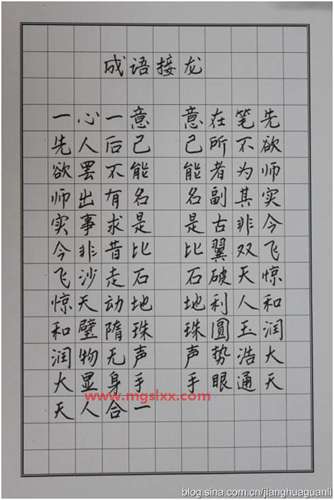 成语接龙
一心一意 意在笔先
先人后己 己所不欲
欲罢不能 能者为师
师出有名 名副其实
实事求是 是古非今
今非昔比 比翼双飞
飞沙走石 石破天惊
惊天动地 地利人和
和璧隋珠 珠圆玉润
润物无声 声势浩大
大显身手 手眼通天
www.mgslxx.com
天人合一
blog.sina.com.cn/jianghuaguanli